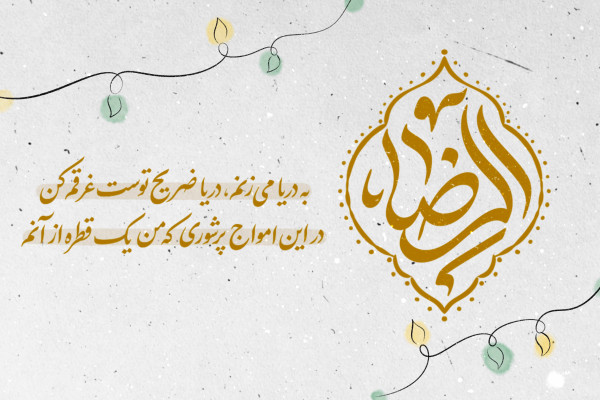 الرضا
به دریا می زنم، دریا ضریح توست غرقم کن
در این امواج پرشوری که من یک قطره از آنم